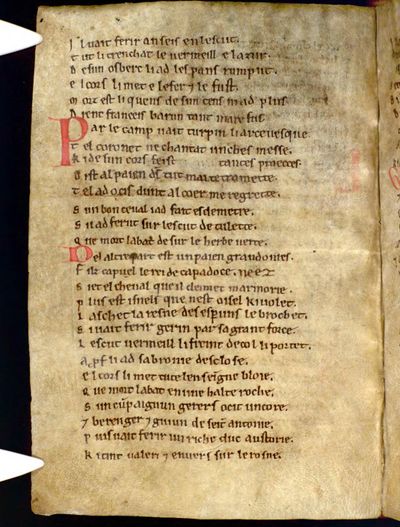 Il vait ferir anseis en lescut.
Tut li trenchat le vermeill e lazur.
De sun osberc li ad les pans rumput.
El cors li met e le fer 7 le fust.
Morz est li quens de sun tens ni ad plus.
Dient franceis barun tant mare fus
Par le camp vait turpin li arcevesque.
Tel coronet ne chantat unches messe.
Ki de sun cors feist tantes proecces.
Dist al paien ds tut mal te tramette.
Tel ad ocis dunt al coer me regrette.
Sun bon ceval i ad fait esdemetre.
Si lad ferut sur lescut de tulette.
Que mort labat desur le herbe verte.
Del altre part est un paien grandonies.
Filz capuel le rei de capadoce.
Siet el cheval que il cleimet marmorie.
Plus est isnels que nest oisel ki volet.
Laschet la resne des esperuns le brochet.
Si vait ferir gerin par sa grant force.
Lescut vermeill li freint de col li portet.
Aprof li ad sa bronie desclose.
El cors li met tute lenseigne bloie.
Que mort labat en une halte roche.
Sun cumpaignun gerers ocit uncore.
7 berenger 7 guiun de seint antonie.
Puis vait ferir un riche duc austorie.
Ki tint valeri 7 envers sur le rosne.